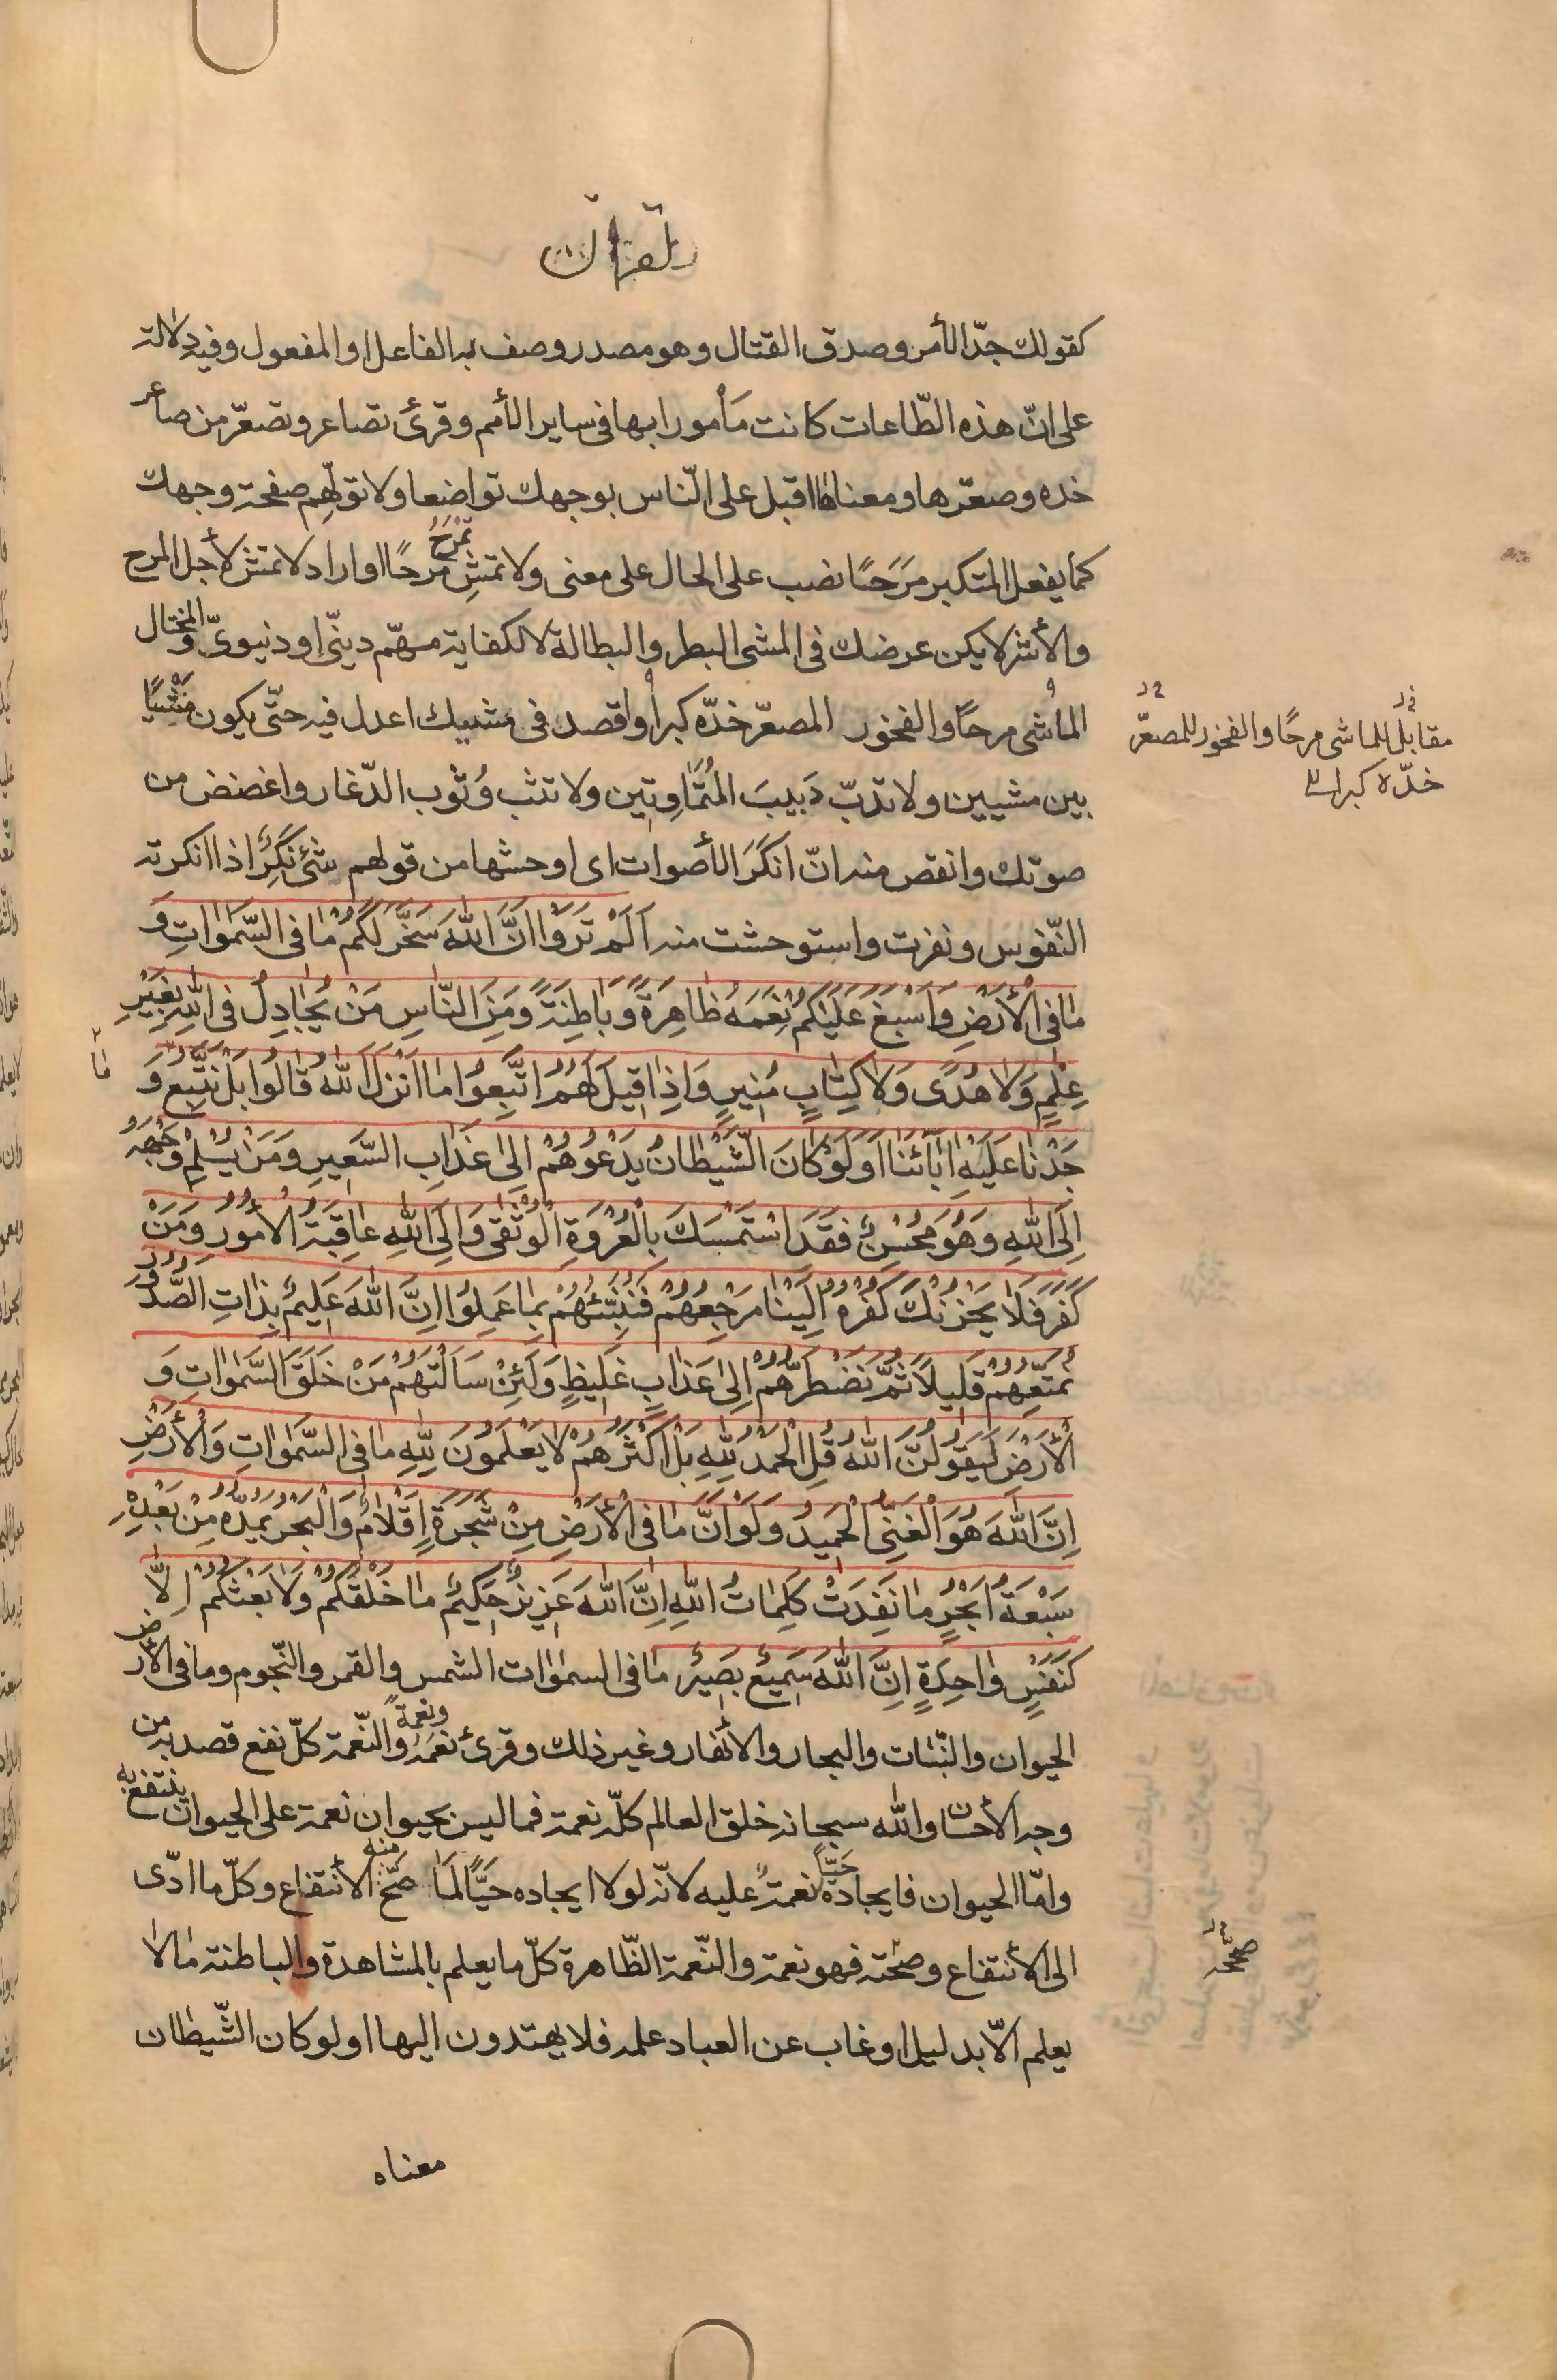 القران
كقولك جدّ الأمر وصدق القتال وهو مصدر وصف به الفاعل او المفعول وفيه دلالة
على انّ هذه الطّاعات كانت مَأمورا بها فى ساير الأمم وقرئ تصاعر وتصعّر من صاعر
خده وصعّرها ومعناه اقبل على النّاس بوجهك تواضعا ولا تولّهم صفحة وجهك
كما يفعل المتكبر مَرَحًا نصب على الحال على معنى ولا تمشِ تمْرَحُ مرحًا او اراد لا تمش لأجل المرح
والأشر لا يكن عرضك فى المشى البطر والبطالة لا لكفاية مهّم دينّى او دنيوىّ والمختال
الماشى مرحًا والفخور المصعّر خدّه كبرا واقصد فى مشيك اعدل فيه حتّى يكون مَشيًا
مقابل للماشى مرحًا والفخور للمصعّر
خدّه كبرا
بين مشيين ولا تدبّ دَبيبَ المُتَمَاوِتِين ولا تثب وُثوب الدّغار واغضض من
صوتك وانقص منه انّ انكَرَ الأصوات اى اوحشها من قولهم شئ نكِرٌ اذا انكرته
النّفوس ونفرت واستوحشت منه اَلَمْ تَرَوْا اَنَّ اللّٰهَ سَخَّرَ لَكُمْ مٰا فى السَّمٰوٰاتِ وَ
مٰا فى الْأَرْضِ وَاَسْبَغَ عَلَيْكُمْ نِعَمَهُ ظٰاهِرَةً وَبٰاطِنَةً وَمِنَ النّٰاسِ مَنْ يُجٰادِلُ فى اللّٰهِ بِغَيْرِ
عِلْمٍ وَلٰا هُدًى وَلٰا كِتٰابٍ مُنيرٍ وَاِذٰا قيلَ لَهُمُ اتَّبِعُوا مٰا اَنْزَلَ اللّٰهُ قٰالُوا بَلْ نَتَّبِعُ مٰا وَ
جَدْنٰا عَلَيْهِ اٰبٰائَنٰا اَوَلَوْ كٰانَ الشَّيْطٰانُ يَدْعُوهُمْ اِلىٰ عَذٰابِ السَّعيرِ وَمَنْ يُسْلِمْ وَجْهَهُ
اِلَى اللّٰهِ وَهُوَ مُحْسِنٌ فَقَدِ اسْتَمْسَكَ بِالْعُرْوَةِ الْوُثْقىٰ وَاِلَى اللّٰهِ عٰاقِبَةُ الْأُمُورُ وَمَنْ
كَفَرَ فَلٰا يَحْزُنْكَ كُفْرُهُ اِلَيْنٰا مَرْجِعُهُمْ فَنُنَبِّئُهُمْ بِمٰا عَمِلُوا اِنَّ اللّٰهَ عَليمٌ بِذٰاتِ الصُّدُورِ
نُمَتِّعُهُمْ قَليلًا ثُمَّ نَضْطَرُّهُمْ اِلىٰ عَذٰابٍ غَليظٍ وَلَئِنْ سَاَلْتَهُمْ مَنْ خَلَقَ السَّمٰوٰاتِ وَ
الْأَرْضَ لَيَقُولُنَّ اللّٰهُ قُلِ الْحَمْدُ لِلّٰهِ بَلْ اَكْثَرُهُمْ لٰا يَعْلَمُونَ لِلّٰهِ مٰا فى السَّمٰوٰاتِ وَالْأَرْضِ
اِنَّ اللّٰهَ هُوَ الْغَنِىُّ الْحَميدُ وَلَوْ اَنَّ مٰا فى الْأَرْضِ مِنْ شَجَرَةٍ اَقْلٰامٌ وَالْبَحْرُ يَمُدُّهُ مِنْ بَعْدِهِ
سَبْعَةُ اَبْحُرٍ مٰا نَفِدَتْ كَلِمٰاتُ اللّٰهِ اِنَّ اللّٰهَ عَزيزٌ حَكيمٌ مٰا خَلْقُكُمْ وَلٰا بَعْثُكُمْ اِلّٰا
كَنَفْسٍ وٰاحِدَةٍ اِنَّ اللّٰهَ سَميعٌ بَصيرٌ مٰا فى السمٰوٰات الشمس والقمر والنّجوم وما فى الأرض
الحيوان والنّبٰات والبحار والأنهار وغير ذلك وقرئ نعَمَهُ ونعمةً والنّعمة كلّ نفع قصد به من
وجه الأحسٰان واللّٰه سبحانه خلق العالم كلّه نعمة فما ليس بحيوان نعمة على الحيوان ينتفع به
وامّا الحيوان فايجاده حَيّاً نعمةٌ عليه لانّه لولا ايجاده حيًّا لَمَا صحّ منه الأنتفاع وكلّ ما ادّى
الى الأنتفاع وصحّته فهو نعمة والنّعمة الظّاهرة كلّ ما يعلم بالمشاهدة والباطنة مٰا لٰا
صححّه
يعلم الّا بدليل او غاب عن العباد علمه فلا يهتدون اليها اولو كان الشّيطان
معناه